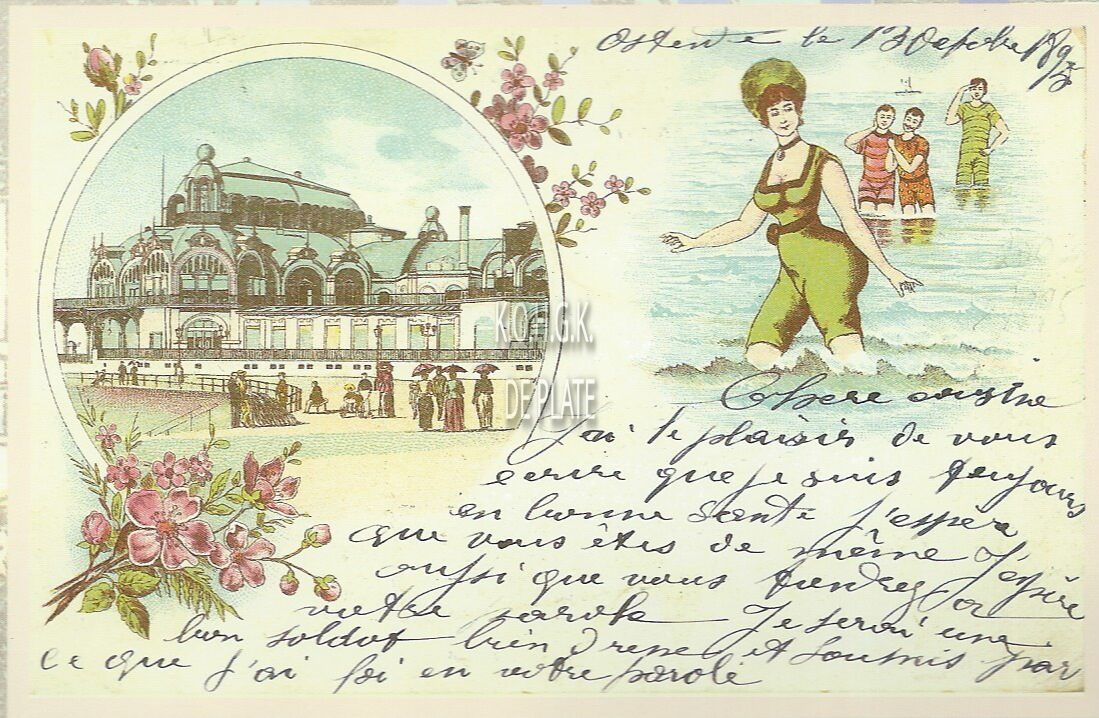 Ostende le 13 Octobre 189
Chere
J'ai le plaisir de vous
ecrire que je suis toujours
en bonne sante j'espère
que vous êtes de même J'espère
aussi que vous tiendrez
votre parole Je serai une
bon soldat bien et soumis par
ce que j'ai foi en votre parole
KON. G.K.
DE PLATE